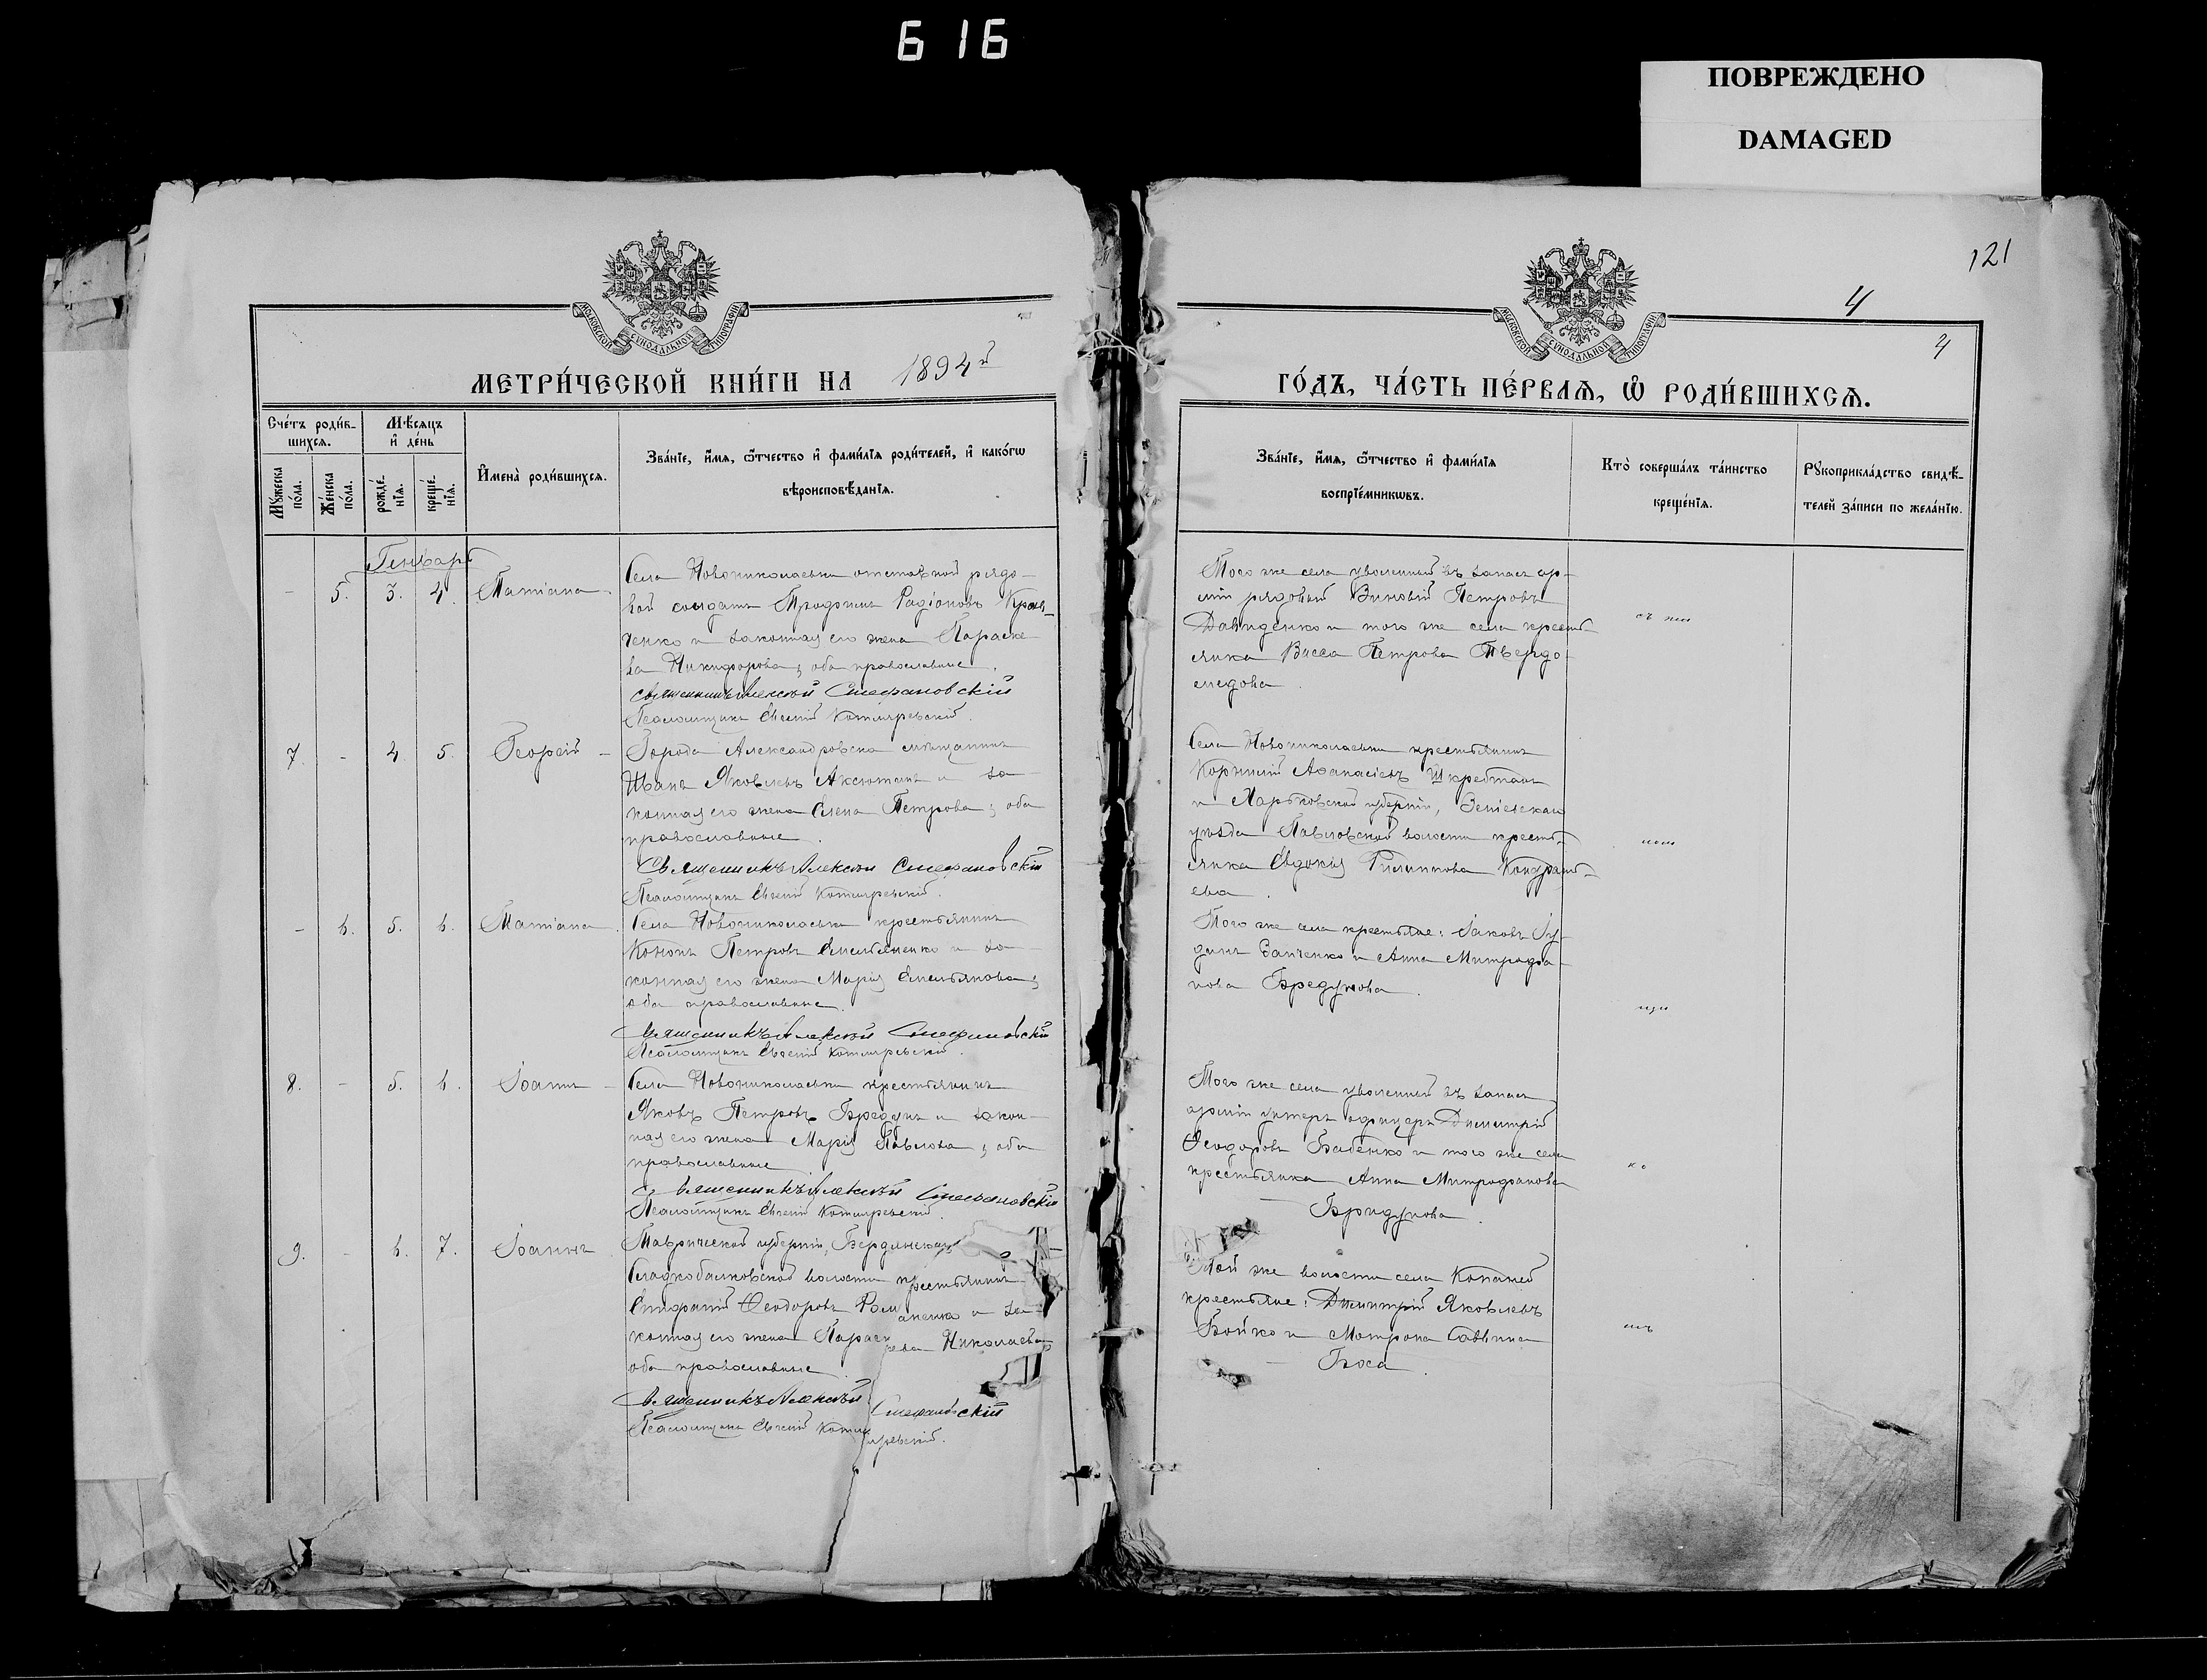 616
ПОВРЕЖДЕНО
DAMAGED
121
4
4
МОСКОВСКОЙ СУНОДАЛЬНОЙ ТИПОГРАФІИ
МОСКОВСКОЙ СУНОДАЛЬНОЙ ТИПОГРАФІИ
МЕТРИ́ЧЕСКОЙ КНИ́ГИ НА 1894й
ГО́ДЪ, ЧА́СТЬ ПЕ́РВАЯ, Ѿ РОДИ́ВШИХСЯ.
Сче́тъ роди́в-
шихся.
Мꙋжеска по́ла.
Же́нска по́ла.
Мѣ́сяцъ и де́нь
рожде́нїя.
креще́нїя.
Имена̀ роди́вшихся.
Зва́нїе, и́мя, ѻ҆́тчество и фами́лїя роди́телей, и како́гѡ
вѣроисповѣ́данїя.
Зва́нїе, и́мя, ѻ҆́тчество и фами́лїя
воспрїе́мникѡвъ.
Кто̀ соверша́лъ та́инство
креще́нїя.
Рꙋкоприкла́дство свидѣ́-
телей за́писи по жела́нїю.
Генварь
- 5. 3. 4. Татіана
Села Новониколаевки отставной рядо-
вой солдатъ Трофимъ Радіоновъ Крав-
ченко и законная его жена Параске-
ва Никифорова, оба православные.
Священникъ Алексѣй Стефановскій
Псаломщикъ Евгеній Котляревскій.
Того же села уволенный въ запасъ ар-
міи рядовый Зиновій Петровъ
Давиденко и того же села кресть-
янка Васса Петрова Твердо-
медова.
7. - 4. 5. Георгій -
Города Александровска мѣщанинъ
Иванъ Яковлевъ Аксютинъ и за-
конная его жена Елена Петрова, оба
православные.
Священникъ Алексѣй Стефановскій
Псаломщикъ Евгеній Котляревскій.
Села Новониколаевки крестьянинъ
Корнилій Аѳанасіевъ Шкребтанъ
и Харьковской губерніи, Зміевскаго
уѣзда Павловской волости кресть-
янка Евдокія Филиппова Кондрать-
ева.
- 6. 5. 6. Татіана.
Села Новониколаевки крестьянинъ
Кононъ Петровъ Емельяненко и за-
конная его жена Марія Емельянова,
оба православные.
Священникъ Алексѣй Стефановскій
Псаломщикъ Евгеній Котляревскій.
Того же села крестьяне: Іаковъ Іу-
динъ Заиченко и Анна Митрофа-
нова Бредунова.
8. - 5. 6. Іоаннъ -
Села Новониколаевки крестьянинъ
Яковъ Петровъ Бредунъ и закон-
ная его жена Марія Павлова, оба
православные.
Священникъ Алексѣй Стефановскій
Псаломщикъ Евгеній Котляревскій.
Того же села уволенный въ запасъ
арміи унтеръ офицеръ Димитрій
Ѳеодоровъ Бабенко и того же села
крестьянка Анна Митрофанова
Бридунова.
9. - 6. 7. Іоаннъ
Таврической губерніи, Бердянскаго
Гладкобалковской волости крестьянинъ
Спиридонъ Ѳеодоровъ Романенко и за-
конная его жена Параскева Николаева
оба православные.
Священникъ Алексѣй Стефановскій
Псаломщикъ Евгеній Котляревскій.
Той же волости села Копаней
крестьяне: Димитрій Яковлевъ
Бойко и Матрона Саввина
Боса.